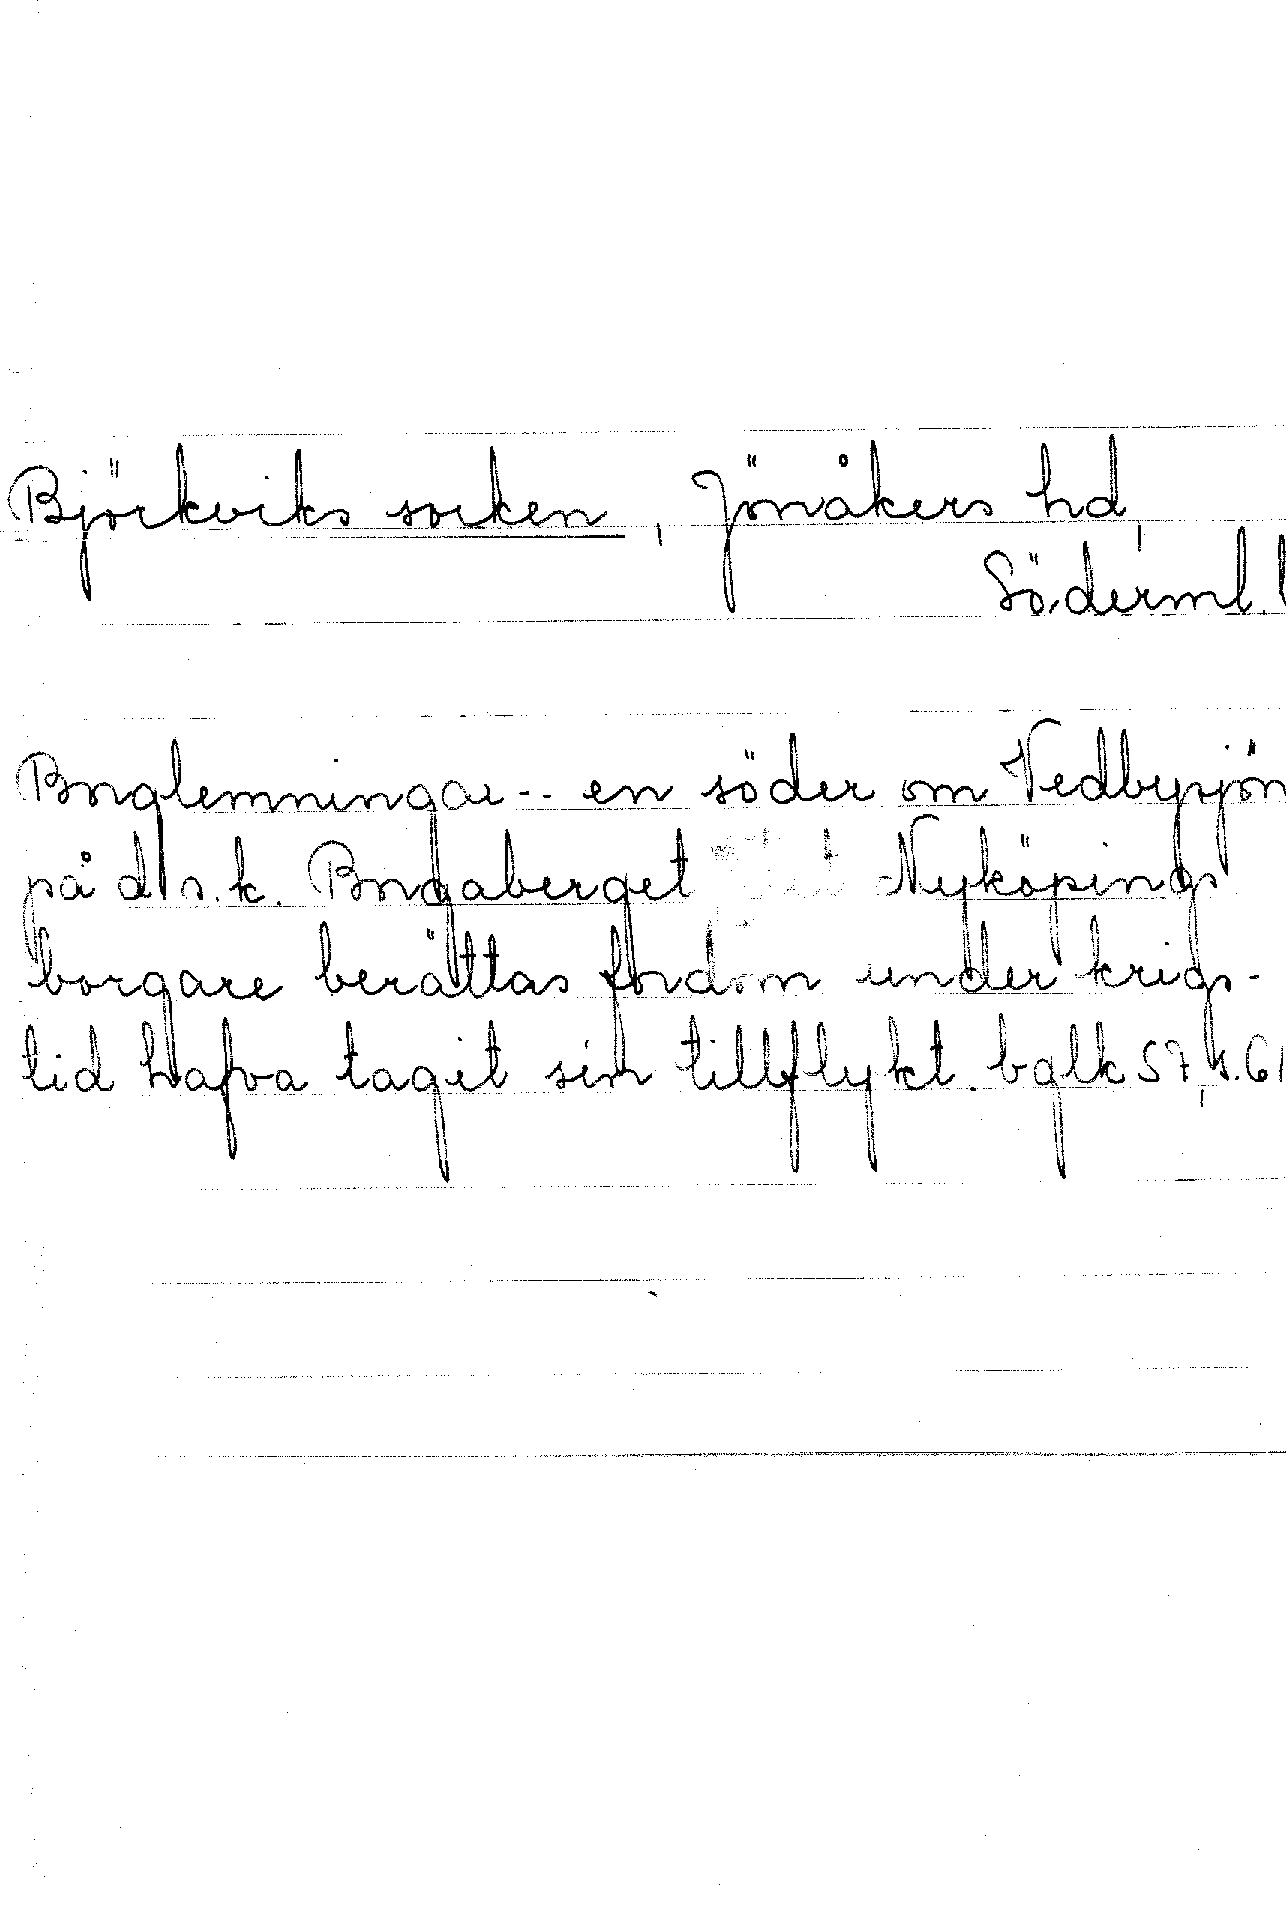 Björkviks socken, Jönåkers hd,
Söderml. l
Borglemningar -- en söder om Vedbysjön
på d. s.k. Borgaberget Nyköpings
borgare berättas fordom under krigs-
tid hafva tagit sin tillflykt. bglk 57, s. 61